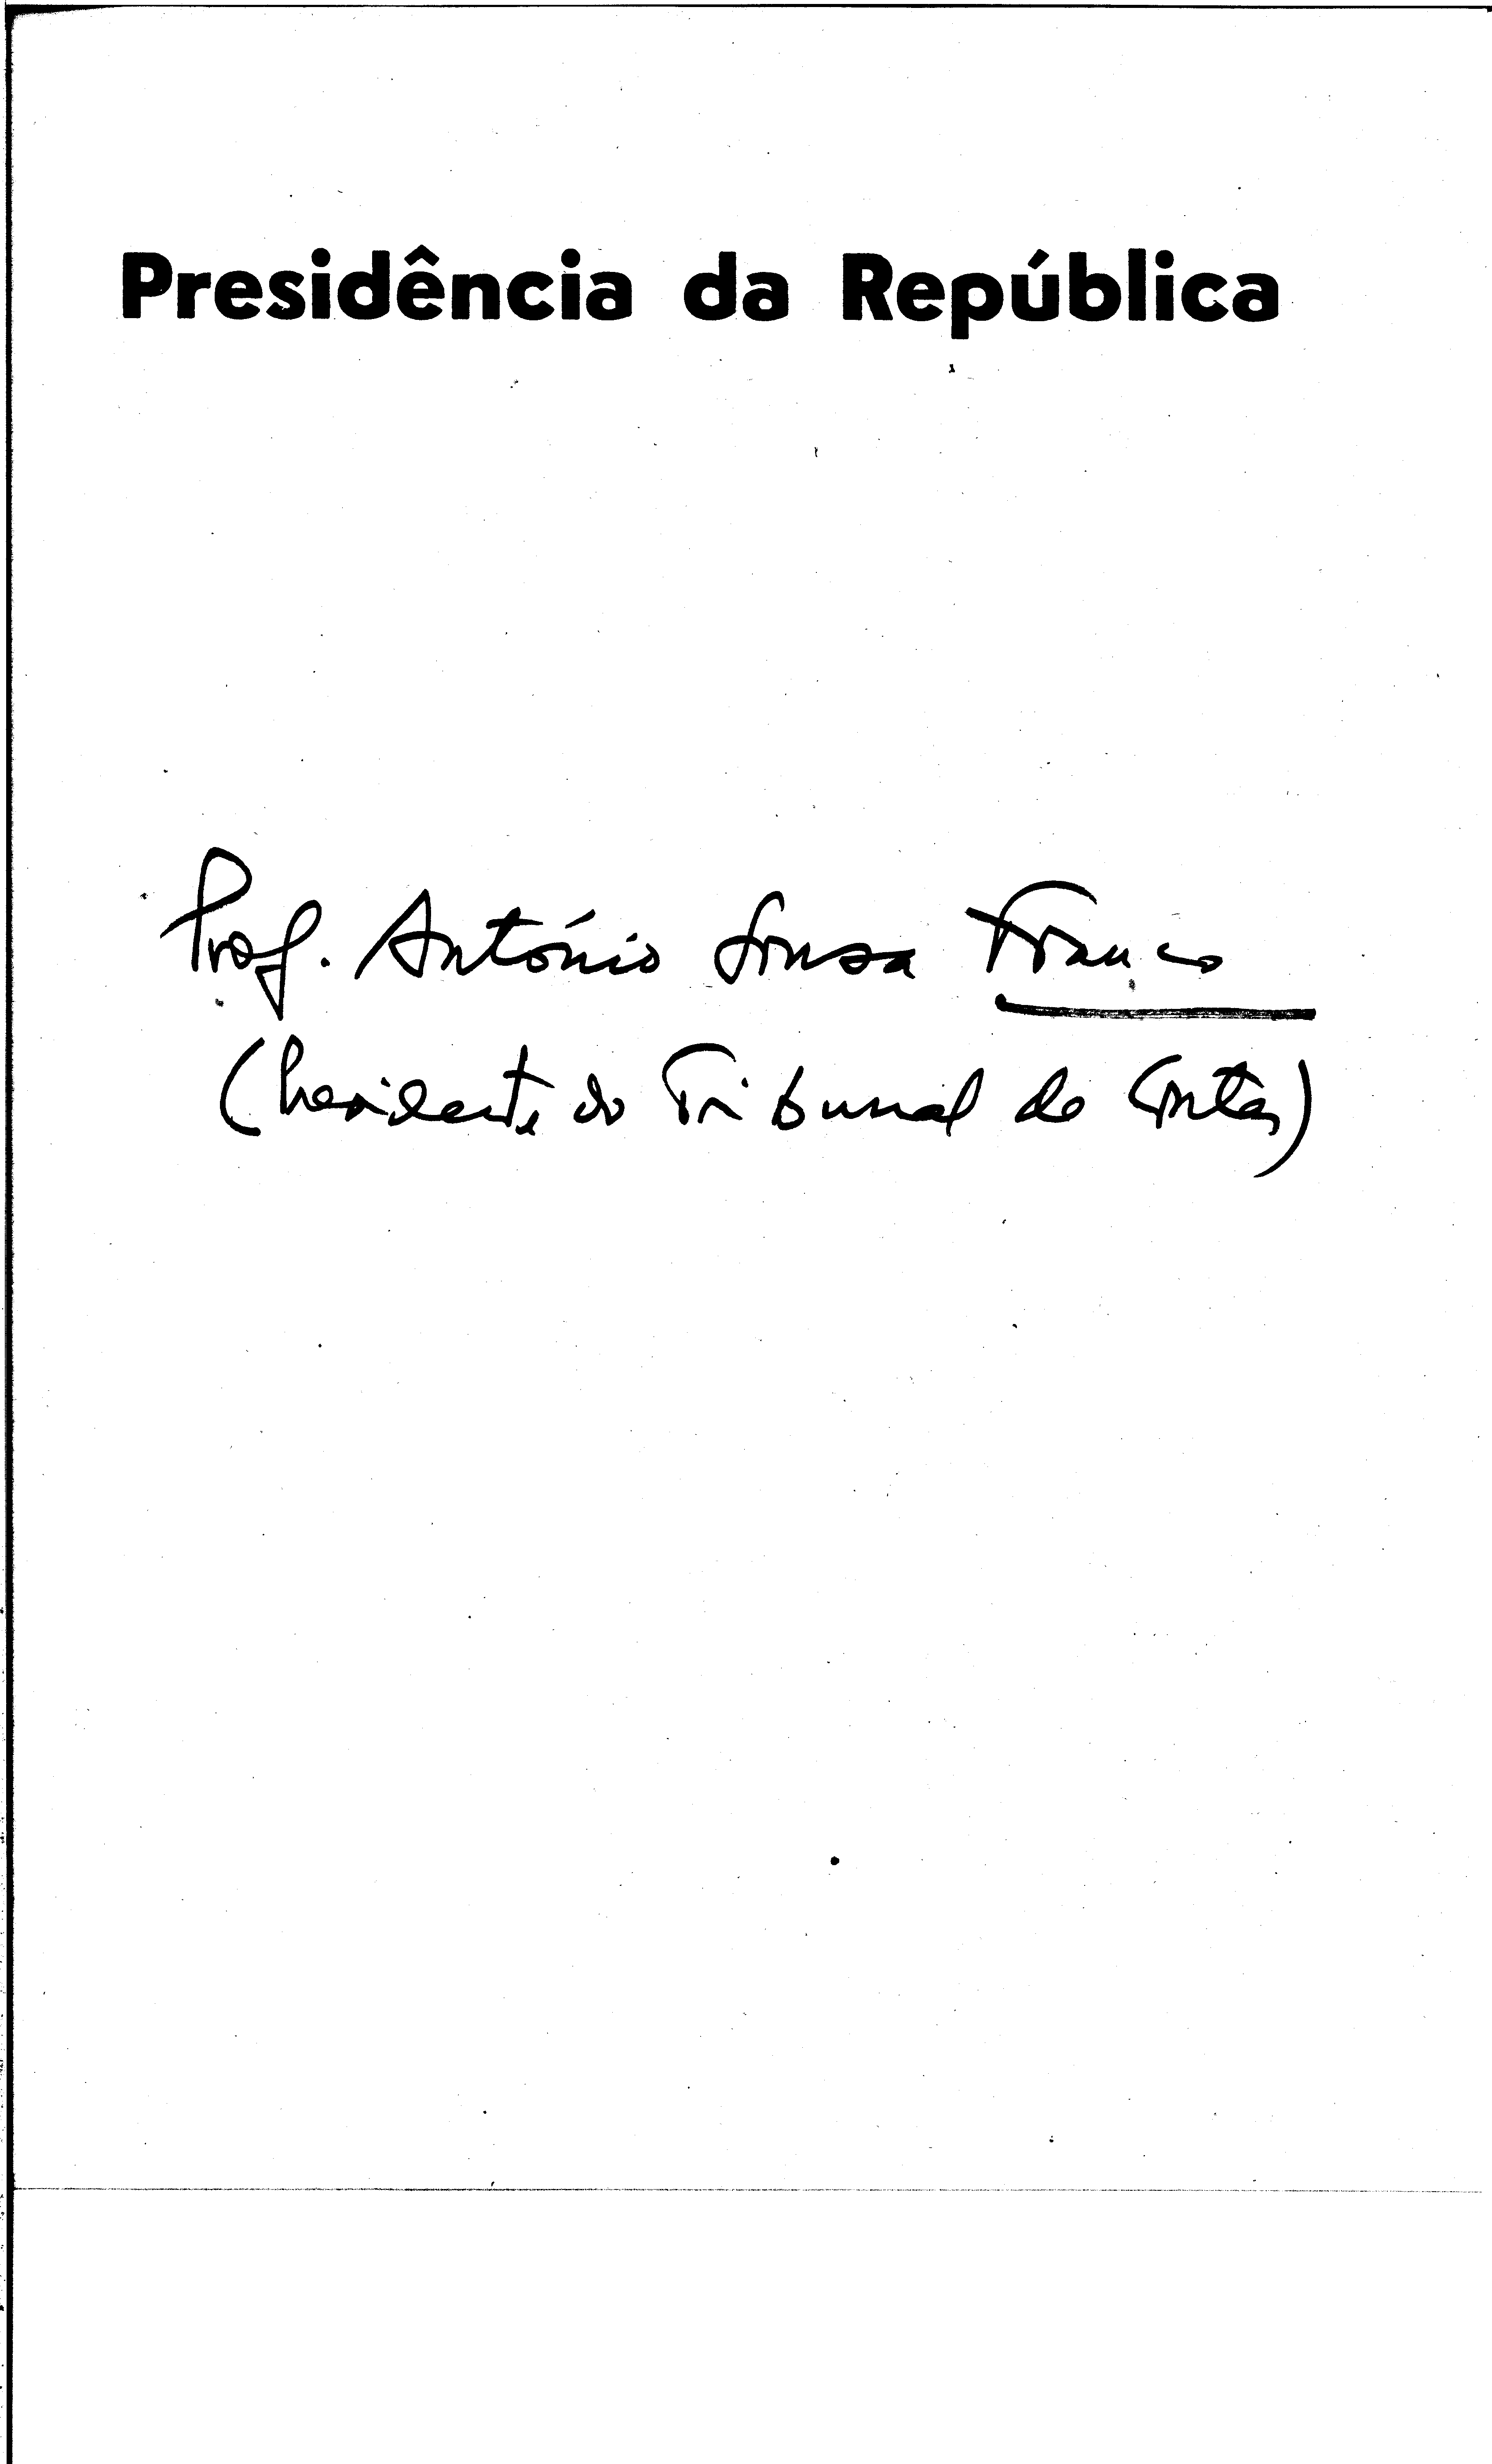 Presidência da República
Prof. António Sousa Franco
(Presidente do Tribunal de Contas)